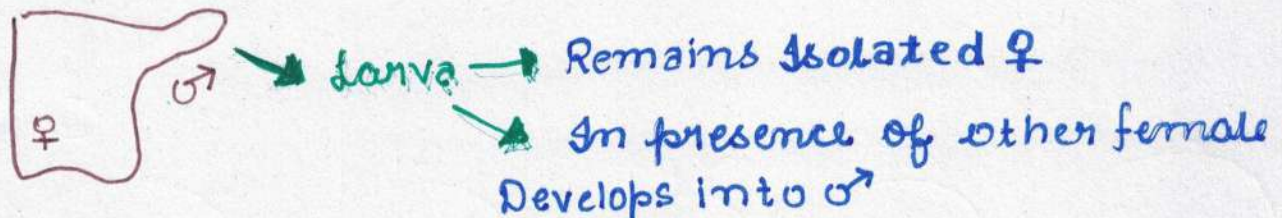 ♂ Larva → Remains Isolated ♀
♀ In presence of other female
Develops into ♂